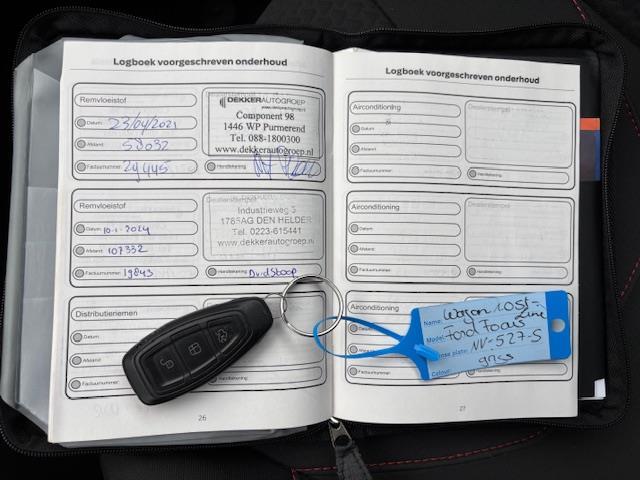 Logboek voorgeschreven onderhoud
Remvloeistof
Datum: 23/04/2021
Afstand: 58032
Factuurnummer: 29445
DEKKERAUTOGROEP
Component 98
1446 WP Purmerend
Tel. 088-1800300
www.dekkerautogroep.nl
Handtekening:
Remvloeistof
Datum: 10-1-2024
Afstand: 107332
Factuurnummer: 19843
Dealerstempel
Industrieweg 5
1785AG DEN HELDER
Tel. 0223-615441
www.dekkerautogroep.nl
Handtekening: David Stoop
Distributieriemen
Datum:
Afstand:
Factuurnummer:
26
Logboek voorgeschreven onderhoud
Airconditioning
Datum:
Afstand:
Factuurnummer:
Dealerstempel
Handtekening:
Airconditioning
Datum:
Afstand:
Factuurnummer:
Dealerstempel
Handtekening:
Airconditioning
Datum:
Afstand:
Factuurnummer:
Handtekening:
Name: Wagon 1.0 ST-Line
Model: Ford Focus
plate: NV-527-S
Colour: grijs
27